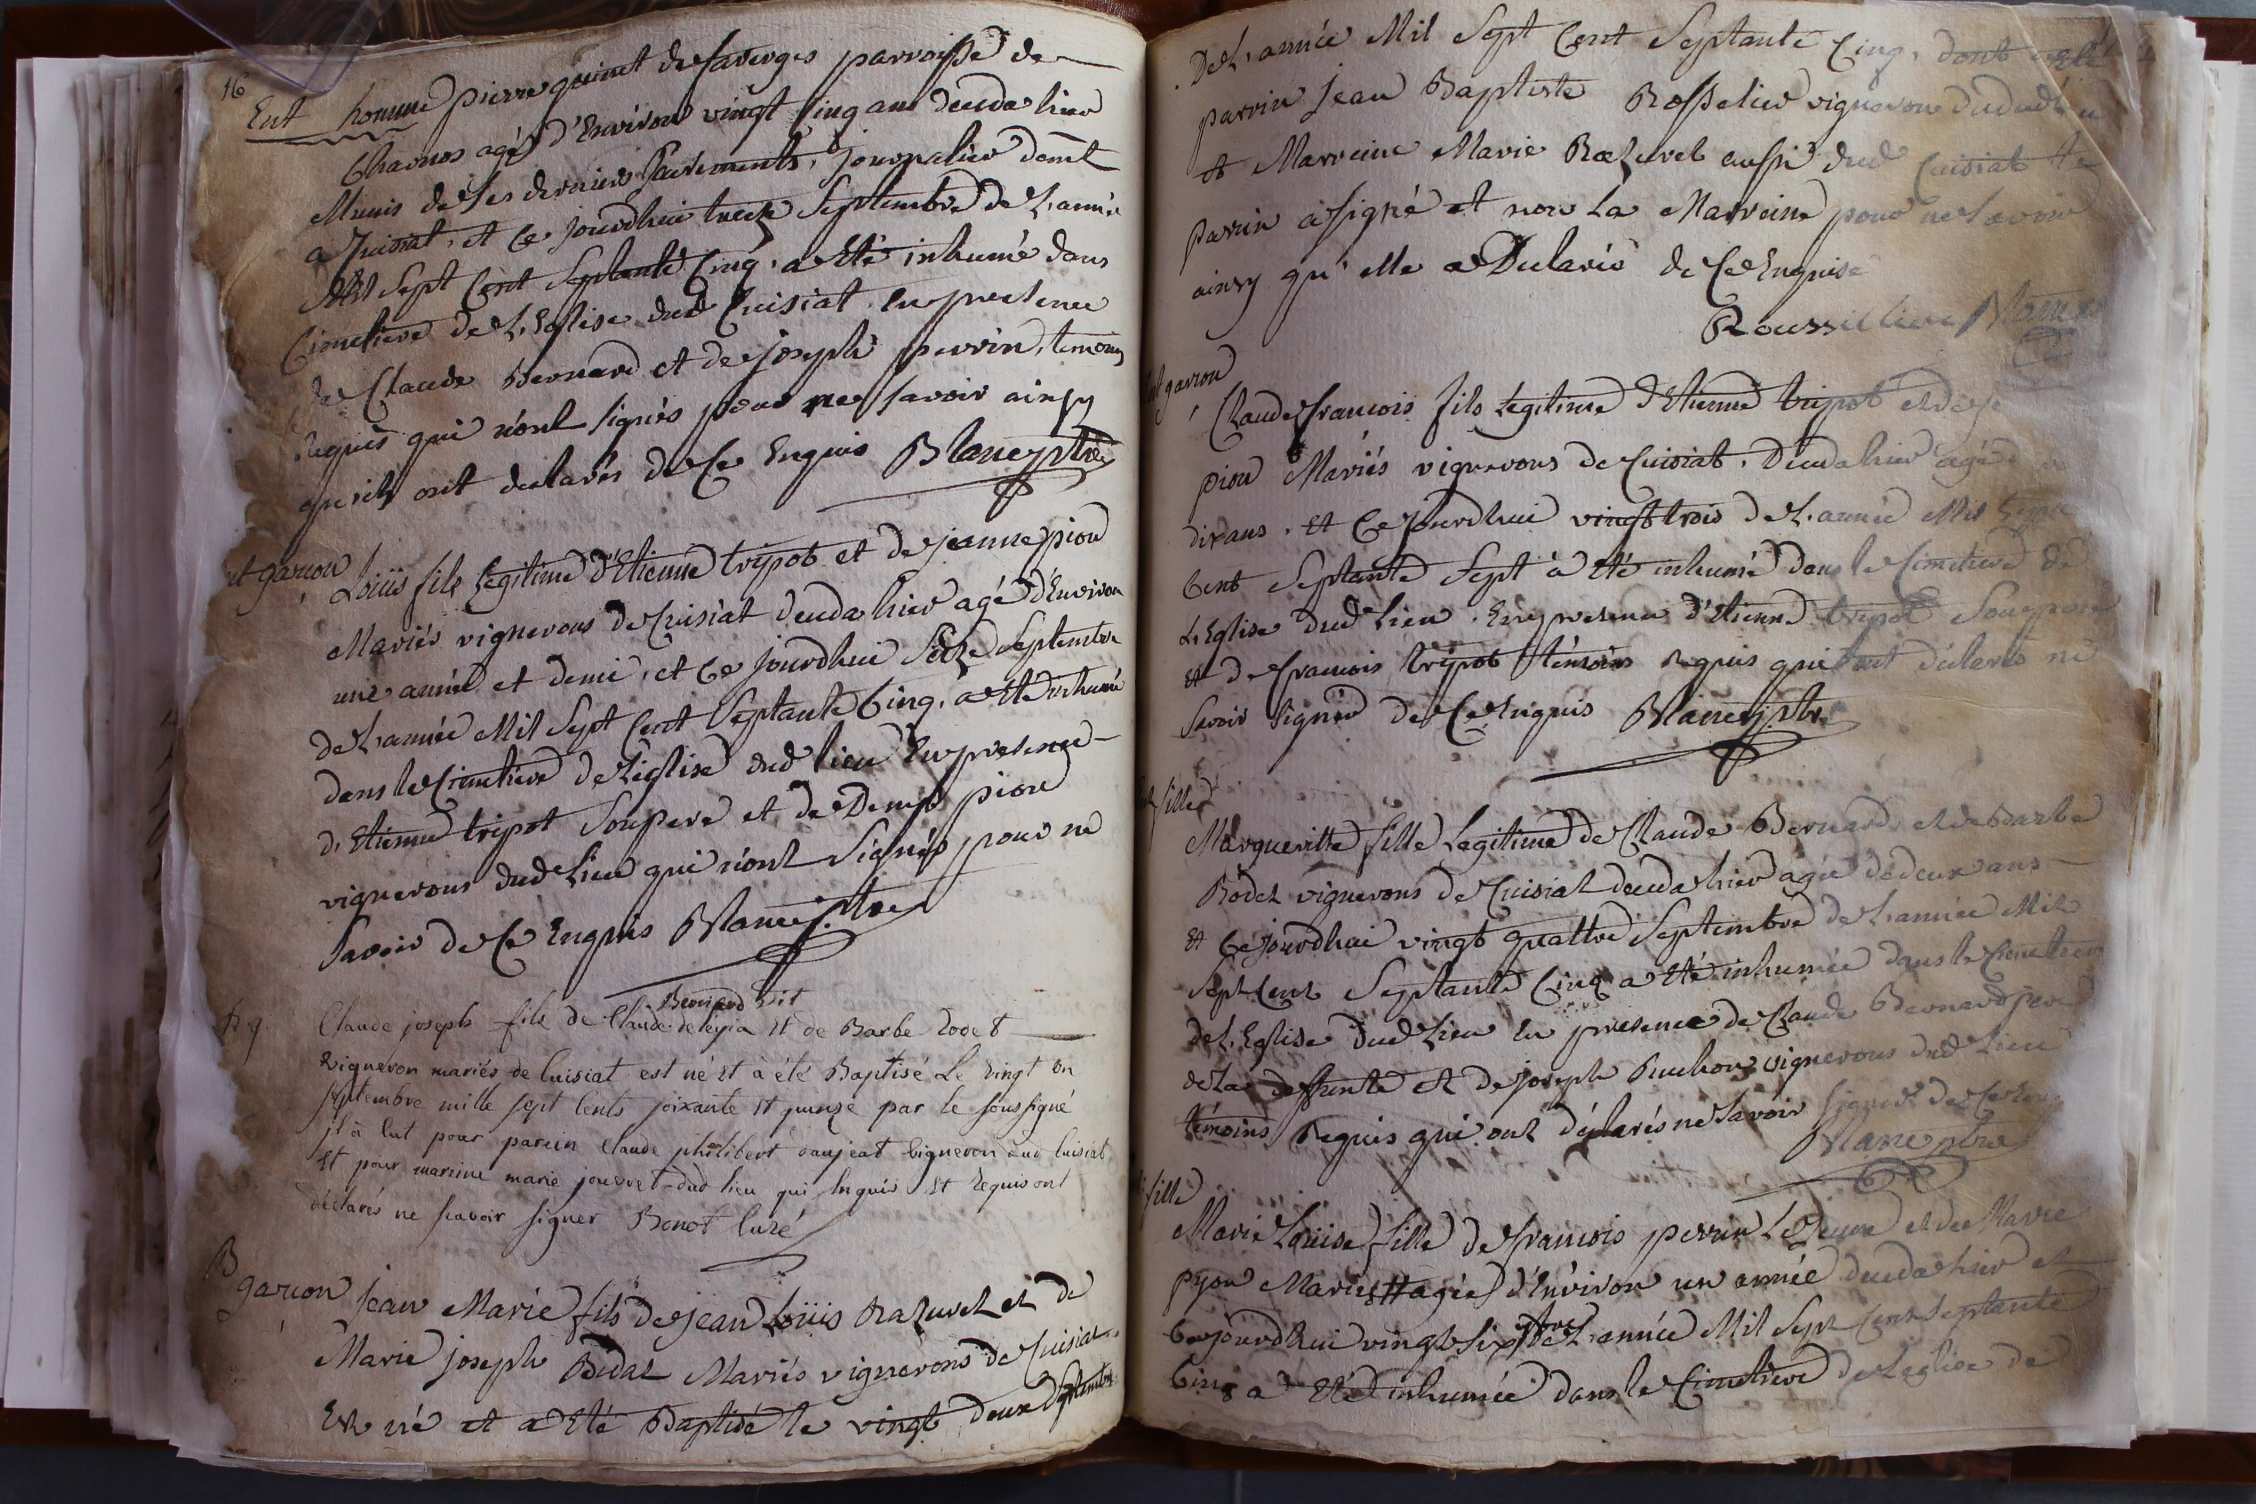 16
Ent homme pierre guinet de faverges parroisse de
Charnos agé d'Environ vingt Cinq ans deceda hier
Munis de Ses derniers Sacrements, journalier demt
a Cuisiat, et Ce jourdhui treize Septembre de L'année
Mil Sept Cent Septante Cinq, a Eté inhumé dans
Cimetiere de L'Eglise dud Cuisiat en presence
de Claude Bernard et de joseph perrin, temoins
Requis qui n'ont signés pour ne savoir ainsy
qu'ils ont declarés de Ce Enquis Blanc ptre
nt garcon Loüis fils Legitime d'Etienne tripot et de jeanne piou
Mariés vignerons de Cuisiat deceda hier agé d'Environ
une année et demie, et Ce jourdhui Seize Septembre
de L'année Mil Sept Cent Septante Cinq, a Eté inhumé
dans le Cimetiere de L'église dud lieu En presence
d'Etienne tripot Son pere et de Denis piou
vignerons dud Lieu qui n'ont Signés pour ne
Savoir de Ce Enquis Blanc ptre
Bernard dit
Claude joseph fils de Claude de leyria Et de Barbe Rodet
vigneron mariés de Cuisiat est né Et à été Baptisé Le vingt un
septembre mille sept Cents soixante Et quinze par le soussigné
il à eut pour parein Claude philibert vigneron dud Cuisiat
Et pour marine marie jouvret dud lieu qui Enquis Et Requis ont
déclarés ne scavoir signer Benot Curé
B garcon Jean Marie fils de jean Loüis Razuret et de
Marie joseph Bidat Mariés vignerons de Cuisiat
Est né et a Eté Baptisé le vingt deux Septembre
De L'année Mil Sept Cent Septante Cinq, dont a Eté
parrin Jean Baptiste Rosselier vigneron dud
et Marreine Marie Razuret aussi dud Cuisiat le
parrin à signé et non La Marreine pour ne Savoir
ainsy qu'elle a Declaré de Ce Enquise
Roussillier Blanc
garcon
Claude francois fils Legitime d'Etienne tripot et de
piou Mariés vignerons de Cuisiat, Deceda hier agé
dix ans, Et Ce jourdhui vingt trois de L'année Mil
Cent Septante Sept à Eté inhumé dans le Cimetiere de
L'Eglise dud Lieu, En presence d'Etienne tripot Son pere
et de francois tripot témoins Requis qui ont déclarés ne
Savoir Signer de Ce Enquis Blanc ptre
fille
Margueritte fille Legitime de Claude Bernard et de Barbe
Rodet vignerons de Cuisiat deceda hier agée de deux ans
Et Ce jourdhui vingt quattre Septembre de L'année Mil
Sept Cent Septante Cinq a Eté inhumée dans le Cimetiere
de L'Eglise dud Lieu En presence de Claude Bernard pere
de La deffunte et de joseph Buchon vignerons dud Lieu
témoins Requis qui ont déclarés ne Savoir Signer de Ce
Blanc ptre
fille
Marie Loüise fille de francois perrin Le jeune et de Marie
pyou Mariés agée d'Environ un année deceda hier et
Ce jourdhui vingt Six 7bre de L'année Mil Sept Cent Septante
Cinq a Eté inhumée dans le Cimetiere de L'eglise de